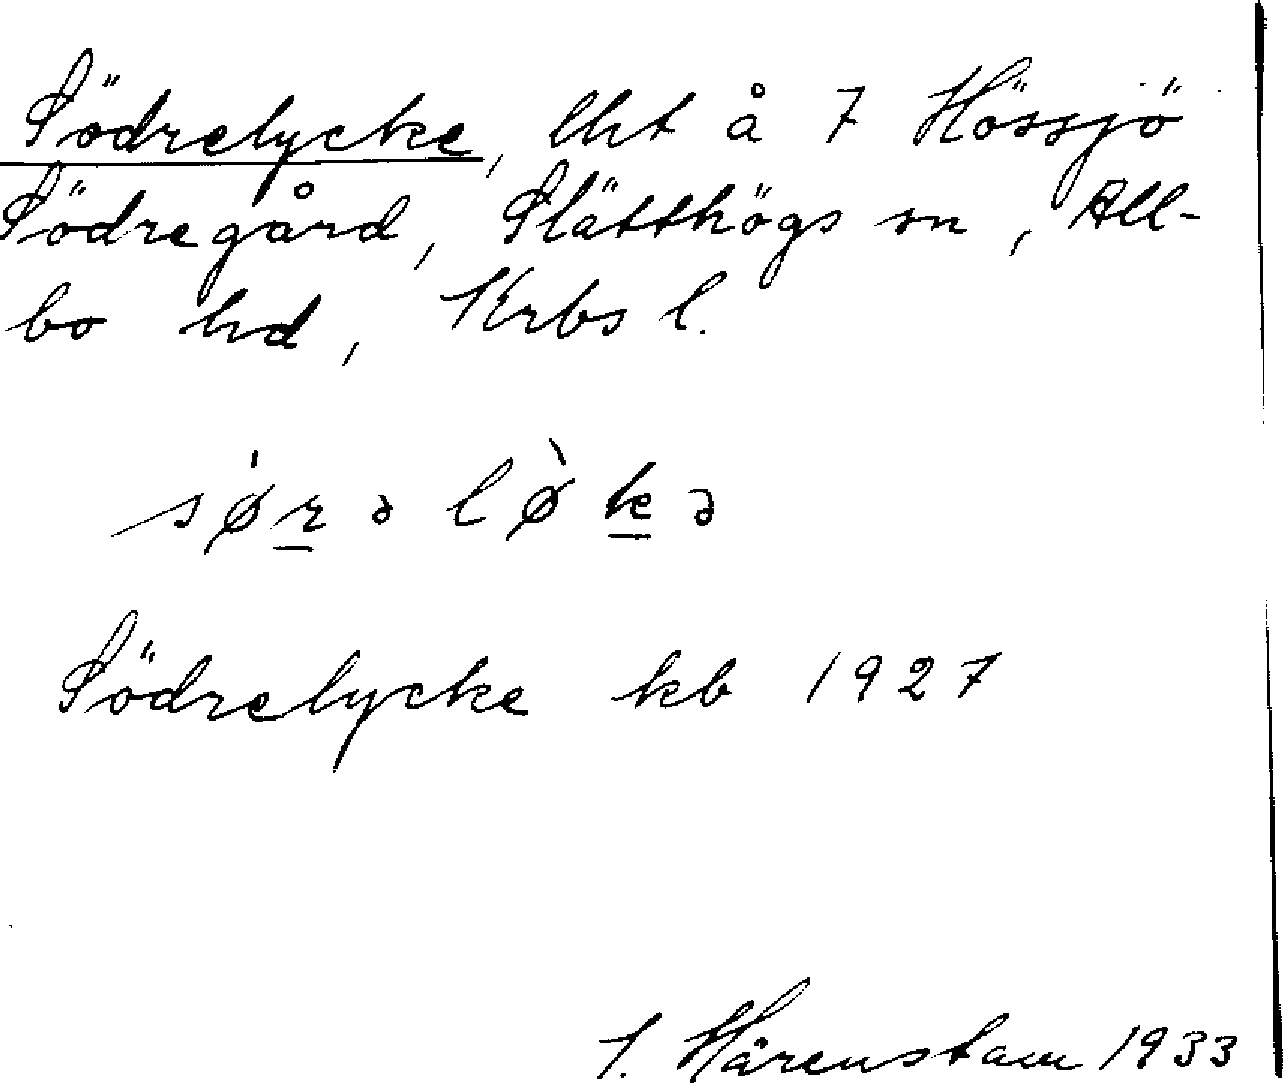 Södrelycke, lht å 7 Hössjö
Södregård, Slätthögs sn, All-
bo hd, Krbs l.
sø̍r̲ə lø̀k̲ə
Södrelycke kb 1927
I. Hårenstam 1933